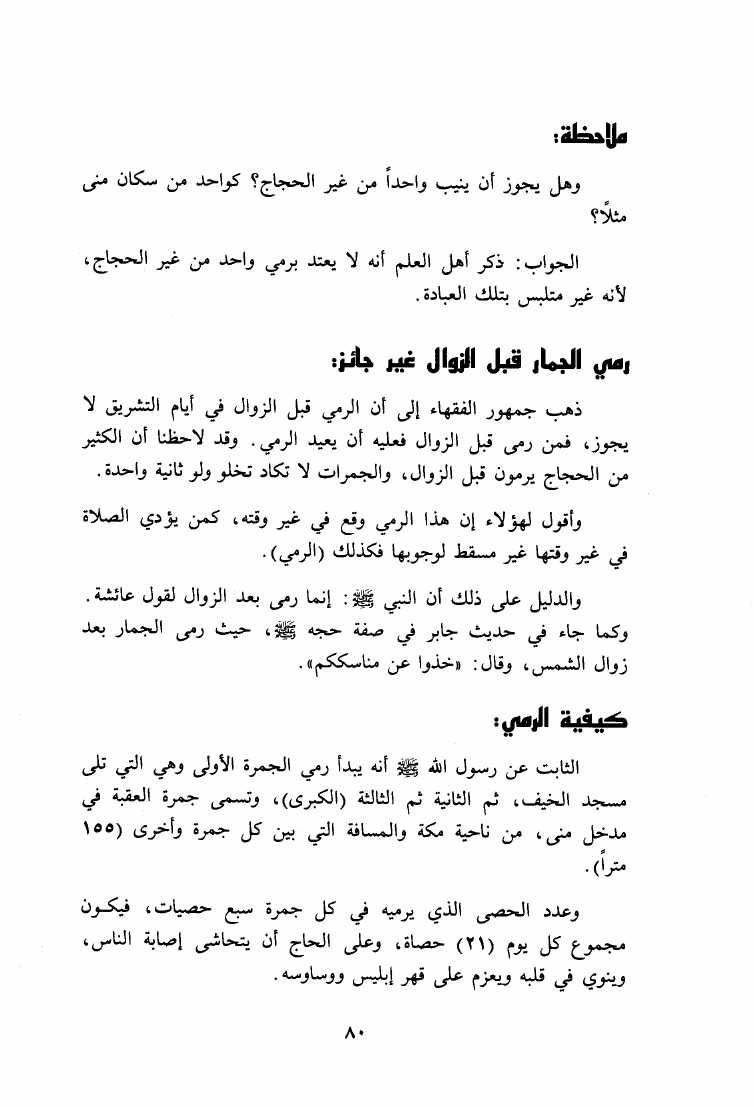 ملاحظة:
وهل يجوز أن ينيب واحداً من غير الحجاج؟ كواحد من سكان منى
مثلاً؟
الجواب: ذكر أهل العلم أنه لا يعتد برمي واحد من غير الحجاج،
لأنه غير متلبس بتلك العبادة.
رمي الجمار قبل الزوال غير جائز:
ذهب جمهور الفقهاء إلى أن الرمي قبل الزوال في أيام التشريق لا
يجوز، فمن رمى قبل الزوال فعليه أن يعيد الرمي. وقد لاحظنا أن الكثير
من الحجاج يرمون قبل الزوال، والجمرات لا تكاد تخلو ولو ثانية واحدة.
وأقول لهؤلاء إن هذا الرمي وقع في غير وقته، كمن يؤدي الصلاة
في غير وقتها غير مسقط لوجوبها فكذلك (الرمي).
والدليل على ذلك أن النبي ﷺ: إنما رمى بعد الزوال لقول عائشة.
وكما جاء في حديث جابر في صفة حجه ﷺ، حيث رمى الجمار بعد
زوال الشمس، وقال: «خذوا عن مناسككم».
كيفية الرمي:
الثابت عن رسول الله ﷺ أنه يبدأ رمي الجمرة الأولى وهي التي تلى
مسجد الخيف، ثم الثانية ثم الثالثة (الكبرى)، وتسمى جمرة العقبة في
مدخل منى، من ناحية مكة والمسافة التي بين كل جمرة وأخرى (١٥٥
متراً).
وعدد الحصى الذي يرميه في كل جمرة سبع حصيات، فيكون
مجموع كل يوم (٢١) حصاة، وعلى الحاج أن يتحاشى إصابة الناس،
وينوي في قلبه ويعزم على قهر إبليس ووساوسه.
٨٠